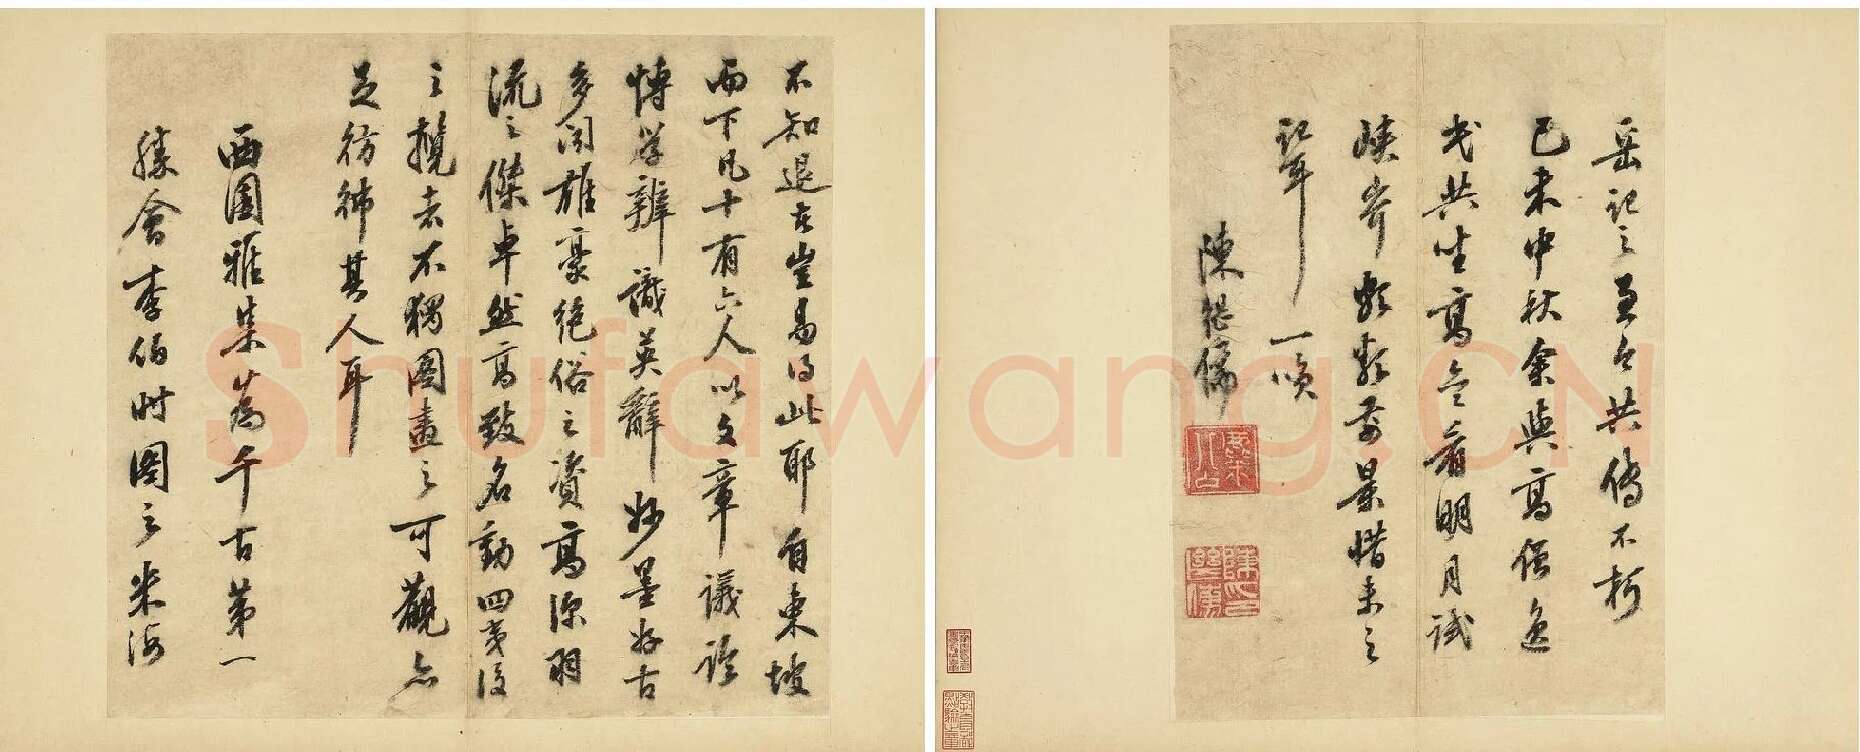 不知退者豈易得此耶自東坡
而下凡十有六人以文章議論
博學辨識英辭妙墨好古
多聞雄豪絕俗之資高深羽
流之傑卓然高致名動四夷後
之攬者不獨圖畫之可觀亦
足彷彿其人耳
西園雅集為千古第一
勝會李伯時圖之米海
岳記之至今共傳不朽
己未中秋余與高僧逸
共坐高看明月試
前景惜未之
記耳一嘆
陳繼儒
Shufawang.CN